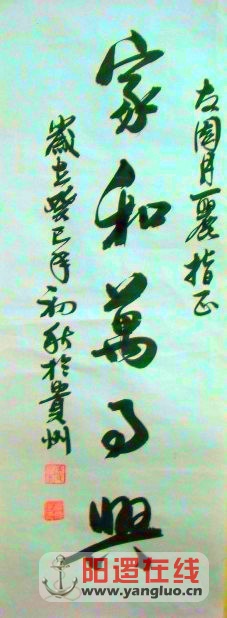 友國月丽指正
家和萬事興
歲在癸巳年初秋於貴州
阳逻在线
www.yangluo.cn